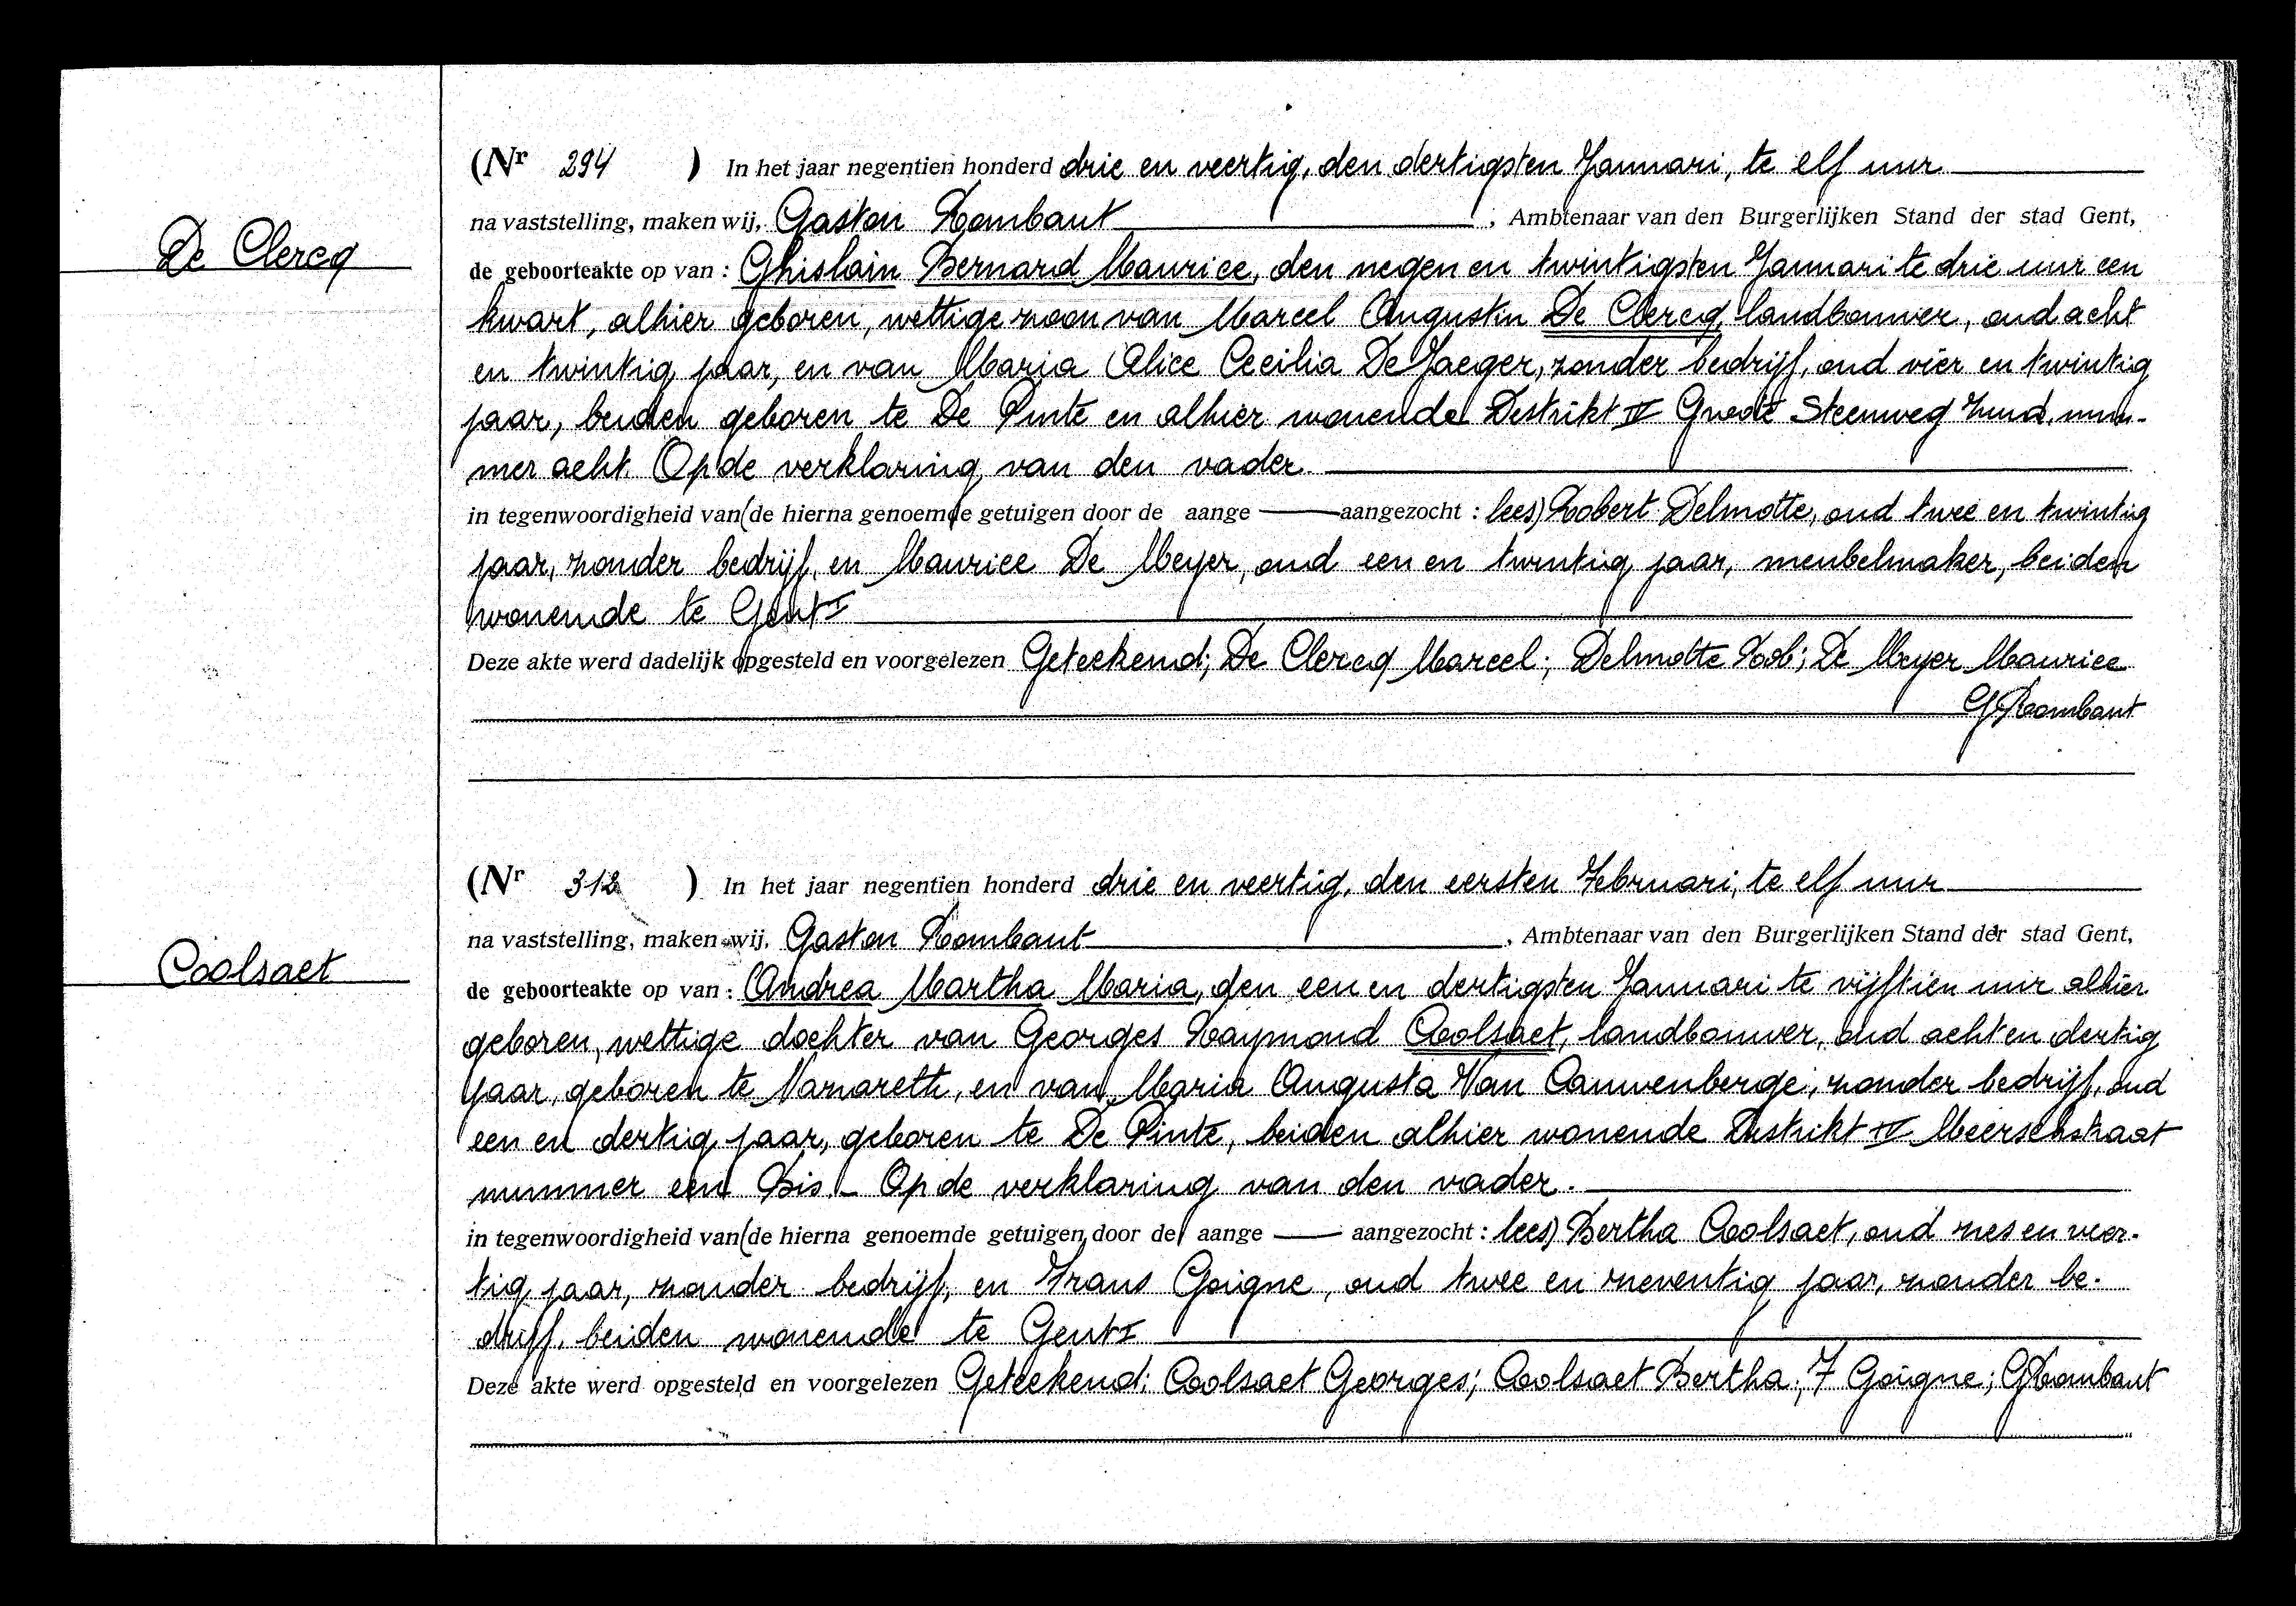 (Nr 294 ) In het jaar negentien honderd drie en veertig, den dertigsten Januari, te elf uur
na vaststelling, maken wij, Gaston Rombaut, Ambtenaar van den Burgerlijken Stand der stad Gent,
De Clercq
de geboorteakte op van : Ghislain Bernard Maurice, den negen en twintigsten Januari te drie uur een
kwart, alhier geboren, wettige zoon van Marcel Augustin De Clercq, landbouwer, oud acht
en twintig jaar, en van Maria Alice Cecilia De Jaeger, zonder bedrijf, oud vier en twintig
jaar, beiden geboren te De Pinte en alhier wonende Distrikt IV Groote Steenweg Zuid, num-
mer acht. Op de verklaring van den vader.
in tegenwoordigheid van (de hierna genoemde getuigen door de aange — aangezocht : lees) Robert Delmotte, oud twee en twintig
jaar, zonder bedrijf, en Maurice De Meyer, oud een en twintig jaar, meubelmaker, beiden
wonende te Gent I
Deze akte werd dadelijk opgesteld en voorgelezen Geteekend; De Clercq Marcel; Delmotte Rob; De Meyer Maurice
G Rombaut
(Nr 312 ) In het jaar negentien honderd drie en veertig, den eersten Februari, te elf uur
na vaststelling, maken wij, Gaston Rombaut, Ambtenaar van den Burgerlijken Stand der stad Gent,
Coolsaet
de geboorteakte op van : Andrea Martha Maria, den een en dertigsten Januari te vijftien uur alhier
geboren, wettige dochter van Georges Raymond Coolsaet, landbouwer, oud acht en dertig
jaar, geboren te Nazareth, en van Maria Augusta Van Cauwenberge, zonder bedrijf, oud
een en dertig jaar, geboren te De Pinte, beiden alhier wonende Distrikt IV Meerschstraat
nummer een Bis. - Op de verklaring van den vader.
in tegenwoordigheid van (de hierna genoemde getuigen door de aange — aangezocht : lees) Bertha Coolsaet, oud zes en veer-
tig jaar, zonder bedrijf, en Frans Goigne, oud twee en zeventig jaar, zonder be-
drijf, beiden wonende te Gent I
Deze akte werd opgesteld en voorgelezen Geteekend; Coolsaet Georges; Coolsaet Bertha; F Goigne; G Rombaut